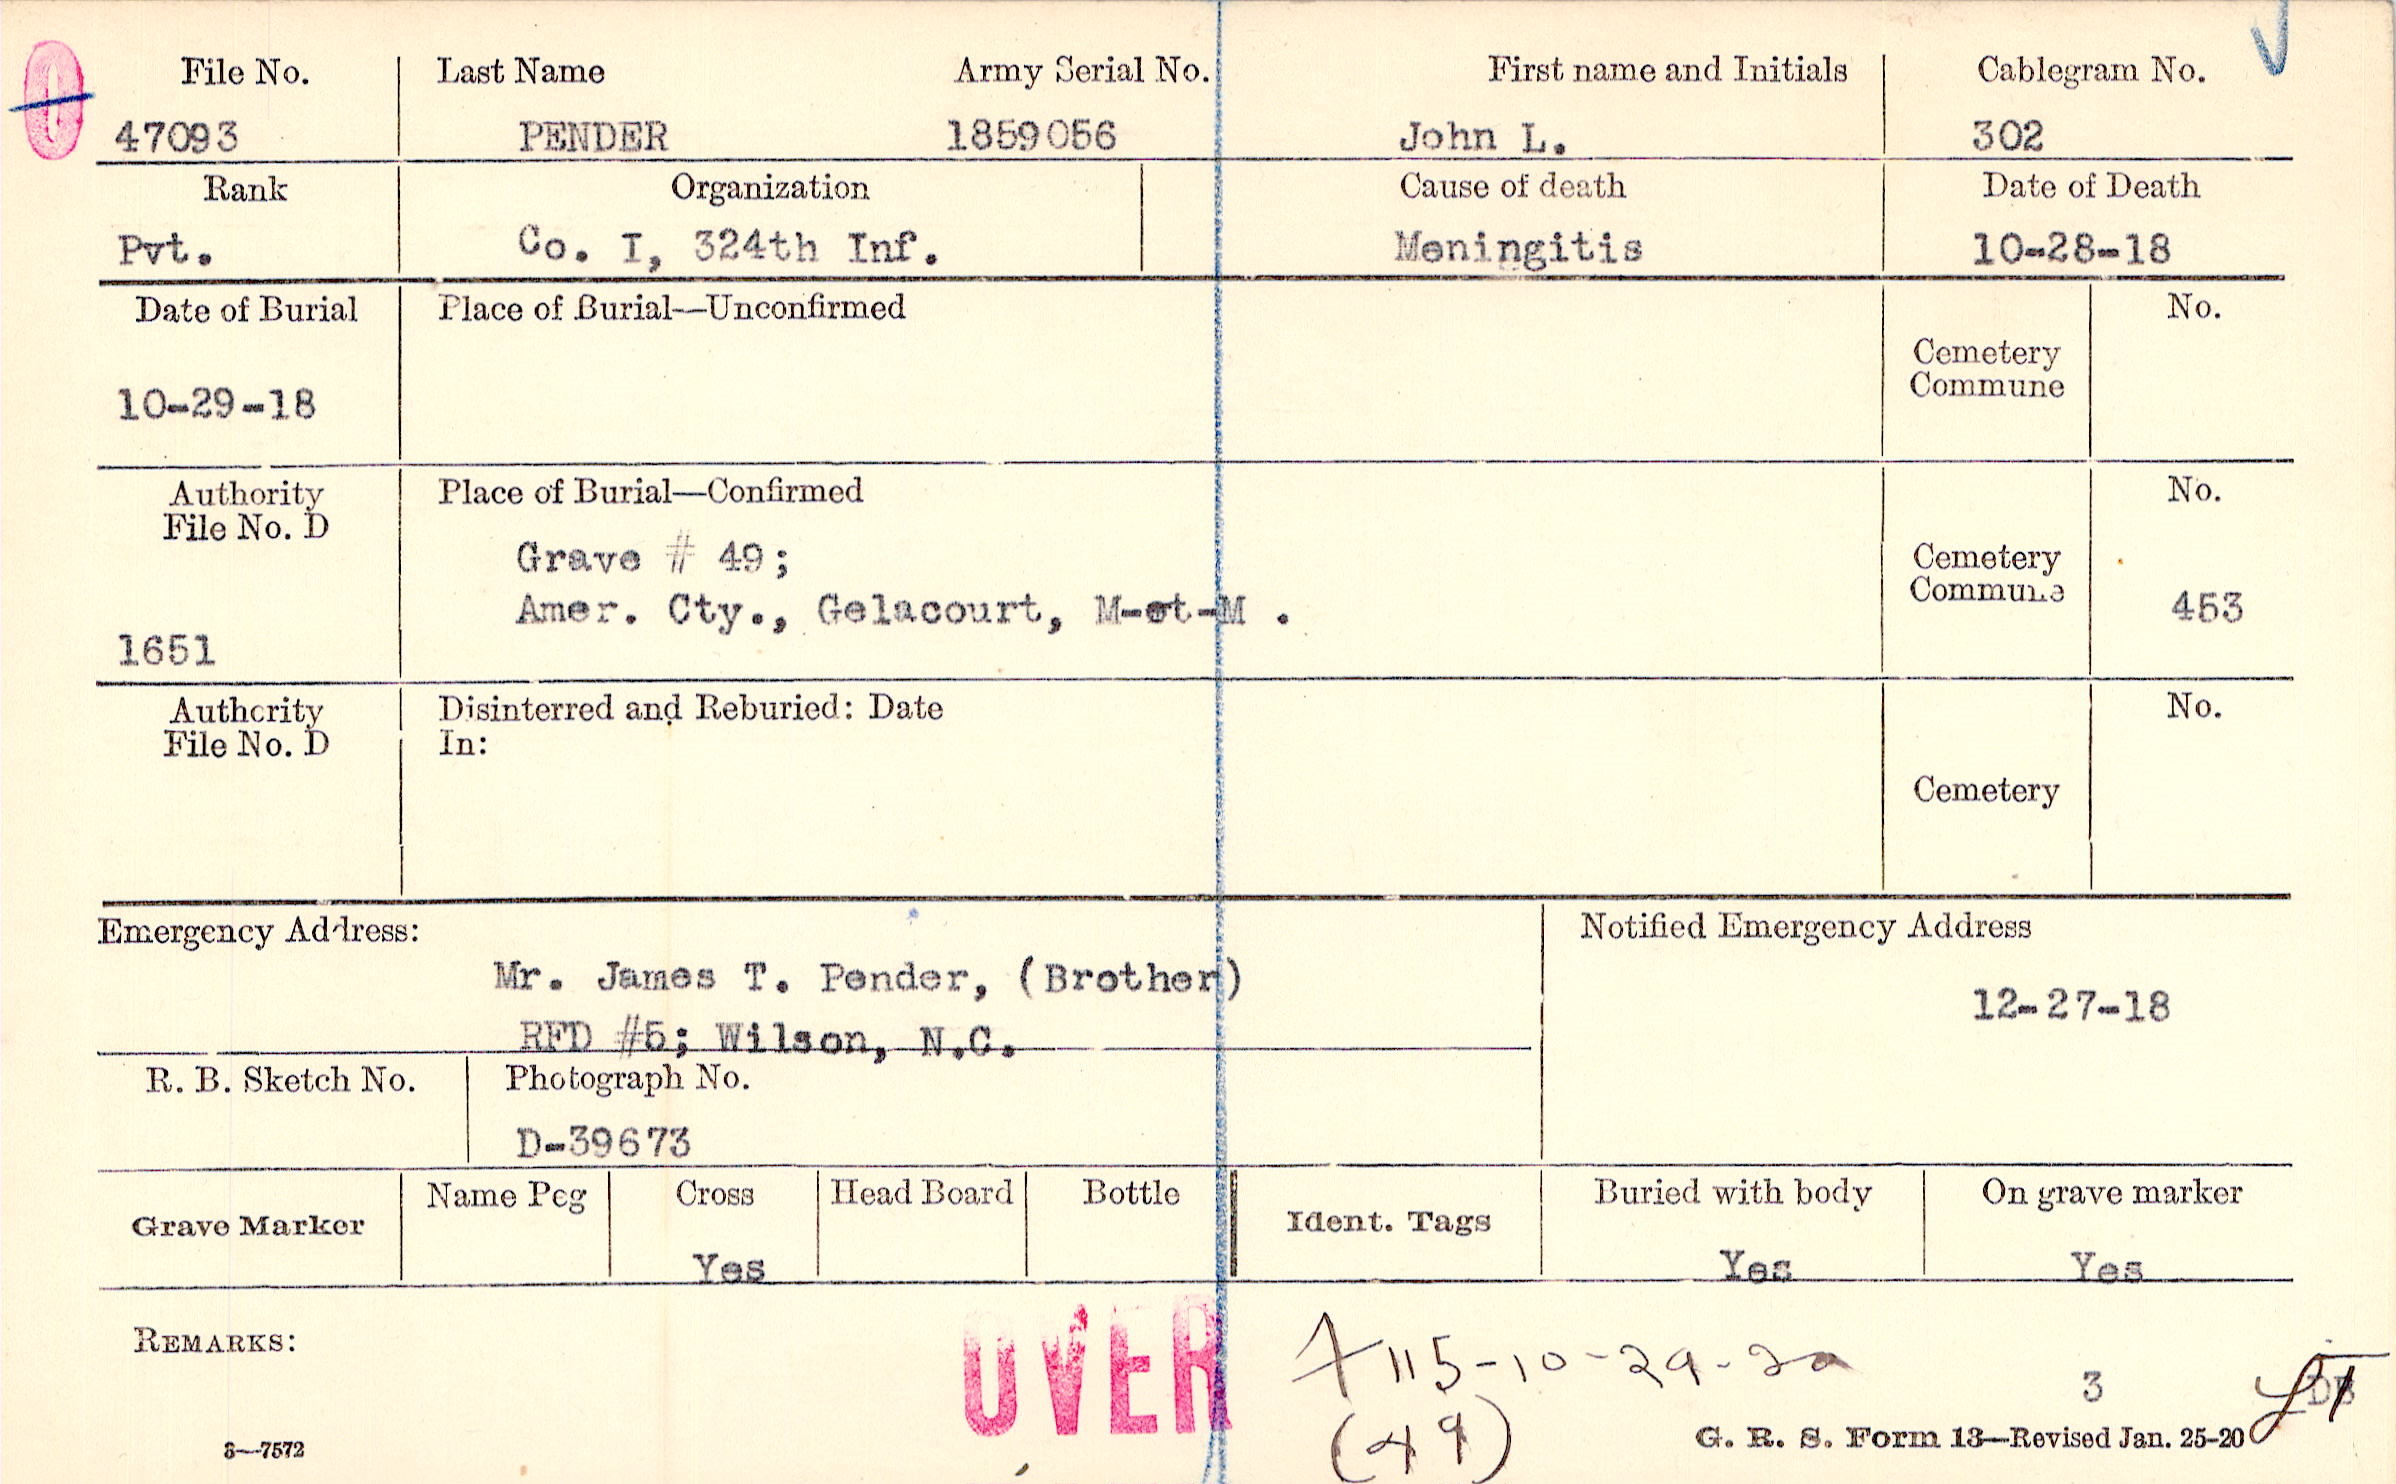 File No. Last Name Army Serial No. First name and Initials Cablegram No.
47093 PENDER 1859056 John L. 302
Rank Organization Cause of death Date of Death
Pvt. Co. I, 324th Inf. Meningitis 10-28-18
Date of Burial Place of Burial—Unconfirmed No.
Cemetery
Commune
10-29-18
Authority Place of Burial—Confirmed No.
File No. D
Grave # 49; Cemetery
Amer. Cty., Gelacourt, M-et-M . Commune 453
1651
Authority Disinterred and Reburied: Date No.
File No. D In:
Cemetery
Emergency Address: Notified Emergency Address
Mr. James T. Pender, (Brother) 12-27-18
RFD #5; Wilson, N.C.
R. B. Sketch No. Photograph No.
D-39673
Grave Marker Name Peg Cross Head Board Bottle Ident. Tags Buried with body On grave marker
Yes Yes Yes
REMARKS: OVER 115-10-29-20
3 DB
(49)
3—7572 G. R. S. Form 13—Revised Jan. 25-20